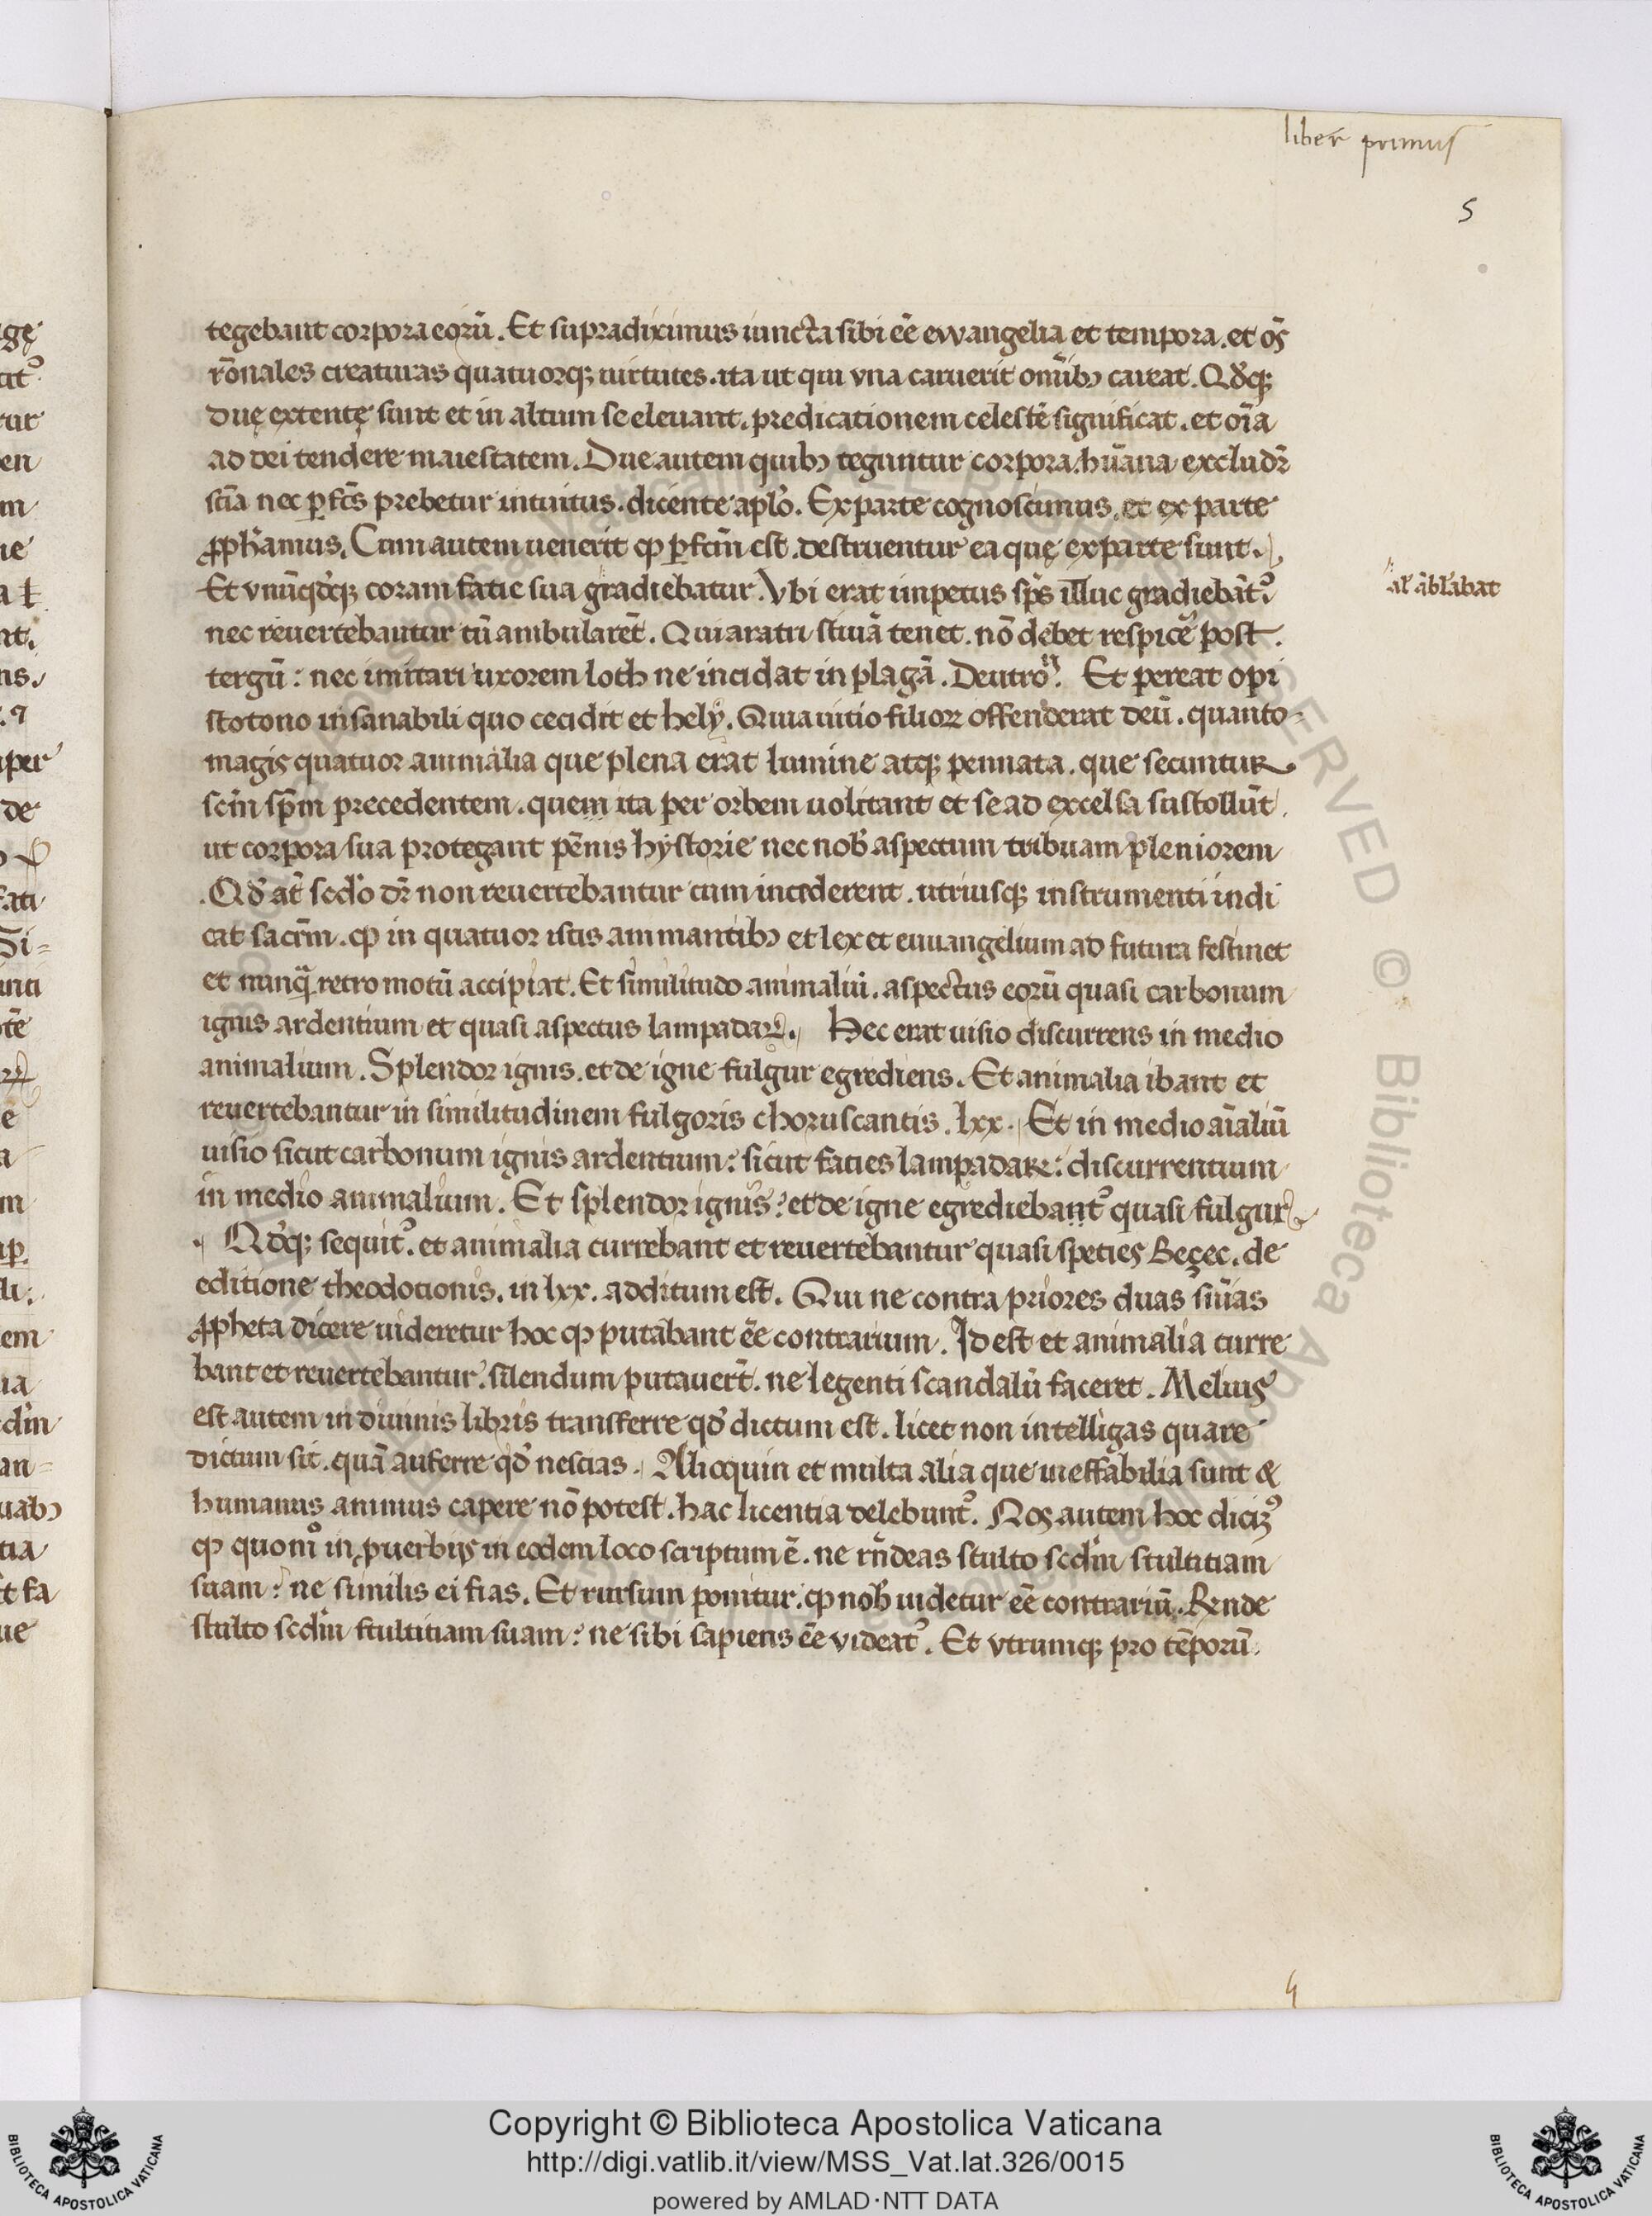 liber primus
5
tegebant corpora eorū. Et supradiximus iuncta sibi eē ewangelia et tempora. et oēs
rōnales creaturas quatuorqꝫ uirtutes. ita ut qui vna caruerit omībꝫ careat. Qđqꝫ
duę extentę sunt et in altum se eleuant. predicationem celestē significat. et oīa
ad dei tendere maiestatem. Due autem quibꝫ teguntur corpora. hūana excludr̄
scīa nec ꝑfcūs prebetur intuitus. dicente aplo̅. Ex parte cognoscimus. et ex parte
ꝓphamus. Cum autem uenerit ꝙ ꝑfcm̄ est. destruentur ea quę ex parte sunt.
Et vnūqđqꝫ coram fatie sua gradiebatur. Vbi erat impetus sps̄ illuc gradiebāt᷒.
nec reuertebantur cū ambularēt. Qui aratri stiuā tenet. nō debet respicē post
tergū: nec imitari uxorem loth ne incidat in plagā. Deutroᷓ. Et pereat opi
stotono insanabili quo cecidit et hely. Quia uitio filioꝝ offenderat deū. quanto
magis quatuor animalia que plena erāt lumine atqꝫ pennata. que secuntur
scm̄ spm̄ precedentem. quem ita per orbem uolitant et se ad excelsa sustollūt.
ut corpora sua protegant pēnis hystorie nec nob̄ aspectum tribuam pleniorem
Qđ at̄ scđo dr̄ non reuertebantur cum incederent. utriusqꝫ instrumenti indi
cat sacrm̄. ꝙ in quatuor istis animantibꝫ et lex et euuangelium ad futura festinet
et nunqᷓ retro motū accipiat. Et similitudo animaliū. aspectus eorū quasi carbonum
ignis ardentium et quasi aspectus lampadaꝝ. Hec erat uisio discurrens in medio
animalium. Splendor ignis. et de igne fulgur egrediens. Et animalia ibant et
reuertebantur in similitudinem fulgoris choruscantis. lxx. Et in medio aīaliū
uisio sicut carbonum ignis ardentium: sicut faties lampadaꝝ: discurrentium
in medio animalium. Et splendor ignis: et de igne egrediebant᷒ quasi fulgur
Qđqꝫ sequit᷒. et animalia currebant et reuertebantur quasi speties Beçec. de
editione theodotionis. in lxx. additum est. Qui ne contra priores duas sn̄ias
ꝓpheta dicere uideretur hoc ꝙ putabant eē contrarium. Id est et animalia curre
bant et reuertebantur. silendum putauer̄t. ne legenti scandalū faceret. Melius
est autem in diuinis libris transferre qđ dictum est. licet non intelligas quare
dictum sit. quā auferre qđ nescias. Alioquin et multa alia que ineffabilia sunt &
humanus animus capere nō potest. hac licentia delebunt᷒. Nos autem hoc dicim᷒
ꝙ quom̊ in ꝓuerbijs in eodem loco scriptum ē. ne rn̄deas stulto scđm stultitiam
suam: ne similis ei fias. Et rursum ponitur. ꝙ nob̄ uidetur eē contrariū. Rn̄de
stulto scđm stultitiam suam: ne sibi sapiens eē videat᷒. Et vtrumqꝫ pro tēporū
Copyright © Biblioteca Apostolica Vaticana
http://digi.vatlib.it/view/MSS_Vat.lat.326/0015
powered by AMLAD·NTT DATA
BIBLIOTECA APOSTOLICA VATICANA
BIBLIOTECA APOSTOLICA VATICANA